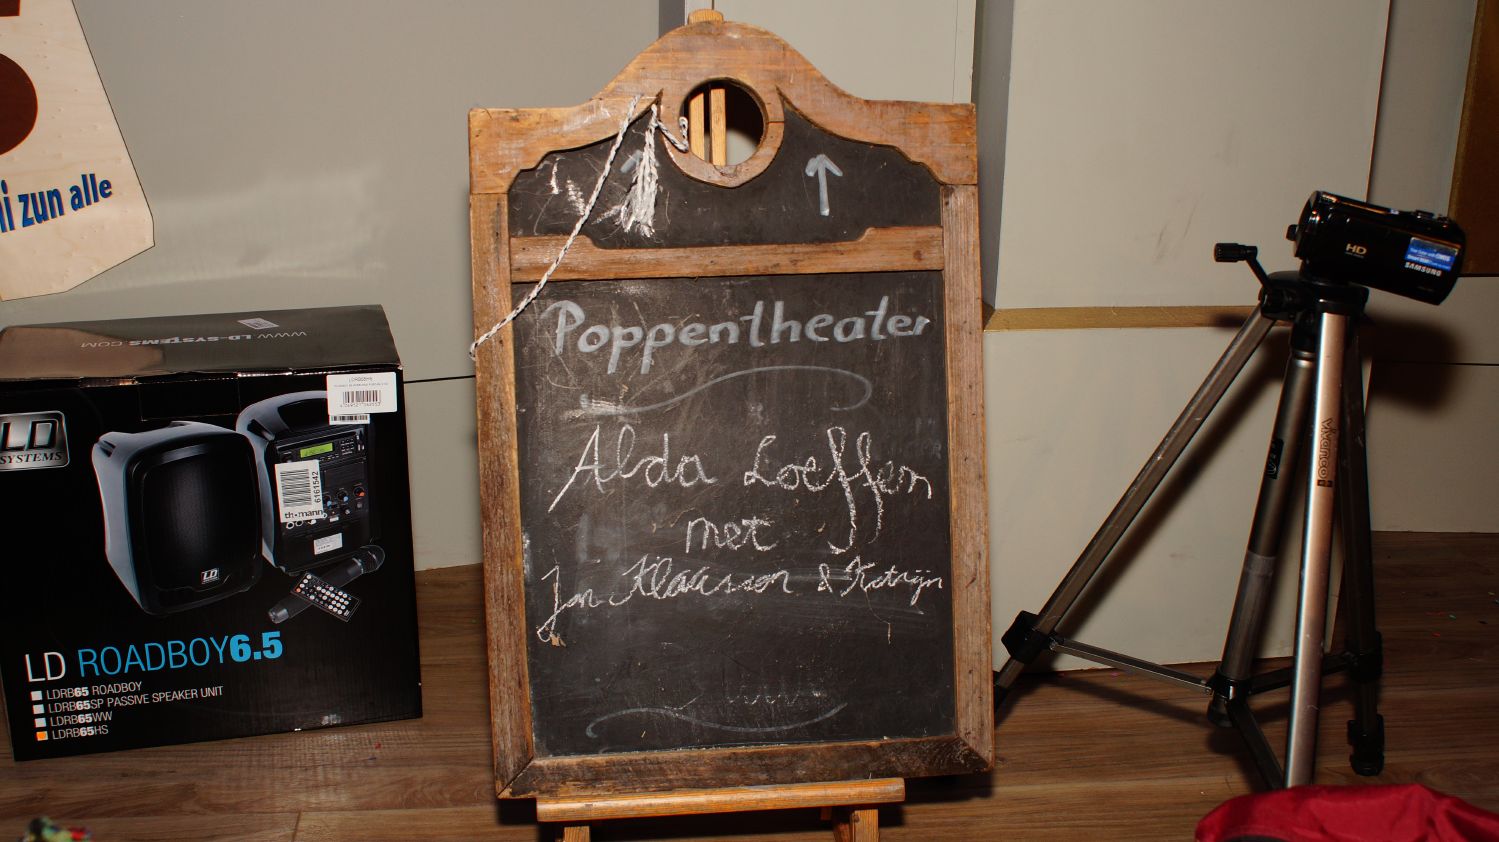 i zun alle
WWW.LD-SYSTEMS.COM
LDRB65HS
LD
SYSTEMS
6161542
th·mann
LD
LD ROADBOY6.5
LDRB65 ROADBOY
LDRB65SP PASSIVE SPEAKER UNIT
LDRB65WW
LDRB65HS
Poppentheater
Alda Loeffen
met
Jan Klaassen & Katrijn
HD
SAMSUNG
vivanco